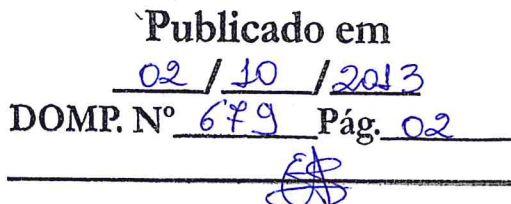 Publicado em
02 / 10 / 2013
DOMP. Nº 679 Pág. 02